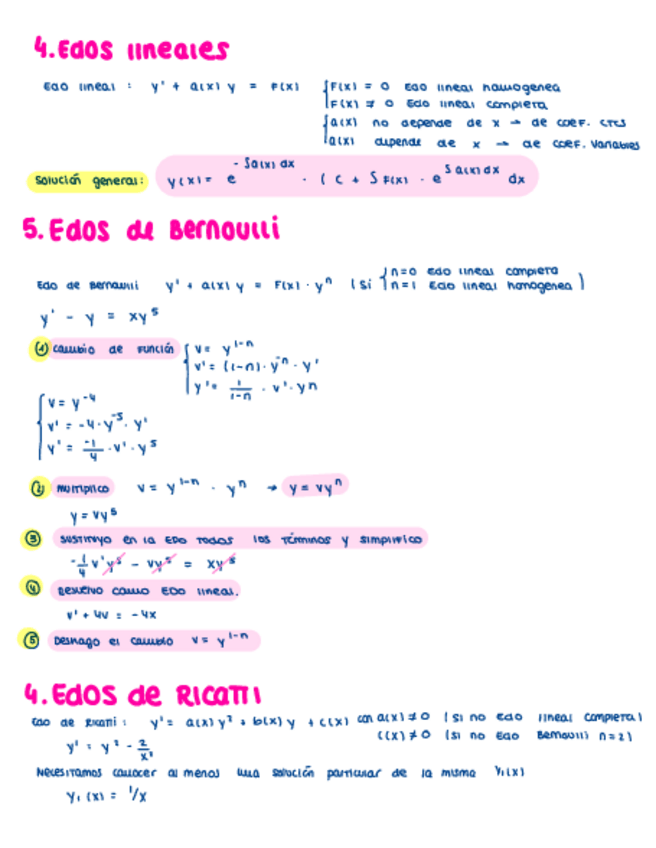 4. Edos lineales
Edo lineal : y' + a(x) y = F(x) { F(x) = 0 Edo lineal homogenea
F(x) ≠ 0 Edo lineal completa
{ a(x) no depende de x → de coef. ctes
a(x) depende de x → de coef. variables
solución general: y(x) = e^{-∫a(x)dx} · ( c + ∫F(x) · e^{∫a(x)dx} dx
5. Edos de Bernoulli
Edo de Bernoulli y' + a(x) y = F(x) · y^n ( si { n=0 edo lineal completa
n=1 Edo lineal homogenea )
y' - y = xy^5
(1) cambio de función { v = y^{1-n}
v' = (1-n) · y^{-n} · y'
y' = \frac{1}{1-n} · v' · y^n
{ v = y^{-4}
v' = -4 · y^{-5} · y'
y' = \frac{-1}{4} · v' · y^5
(2) multiplico v = y^{1-n} · y^n → y = vy^n
y = vy^5
(3) sustituyo en la EDO todos los términos y simplifico
-\frac{1}{4} v'y^5 - vy^5 = xy^5
(4) Resuelvo como EDO lineal.
v' + 4v = -4x
(5) Deshago el cambio v = y^{1-n}
4. EDOS de RICATTI
Edo de Ricatti : y' = a(x) y² + b(x) y + c(x) con a(x) ≠ 0 (si no edo lineal completa)
c(x) ≠ 0 (si no Edo Bernoulli n=2)
y' = y² - \frac{2}{x²}
Necesitamos conocer al menos una solución particular de la misma y₁(x)
y₁(x) = 1/x